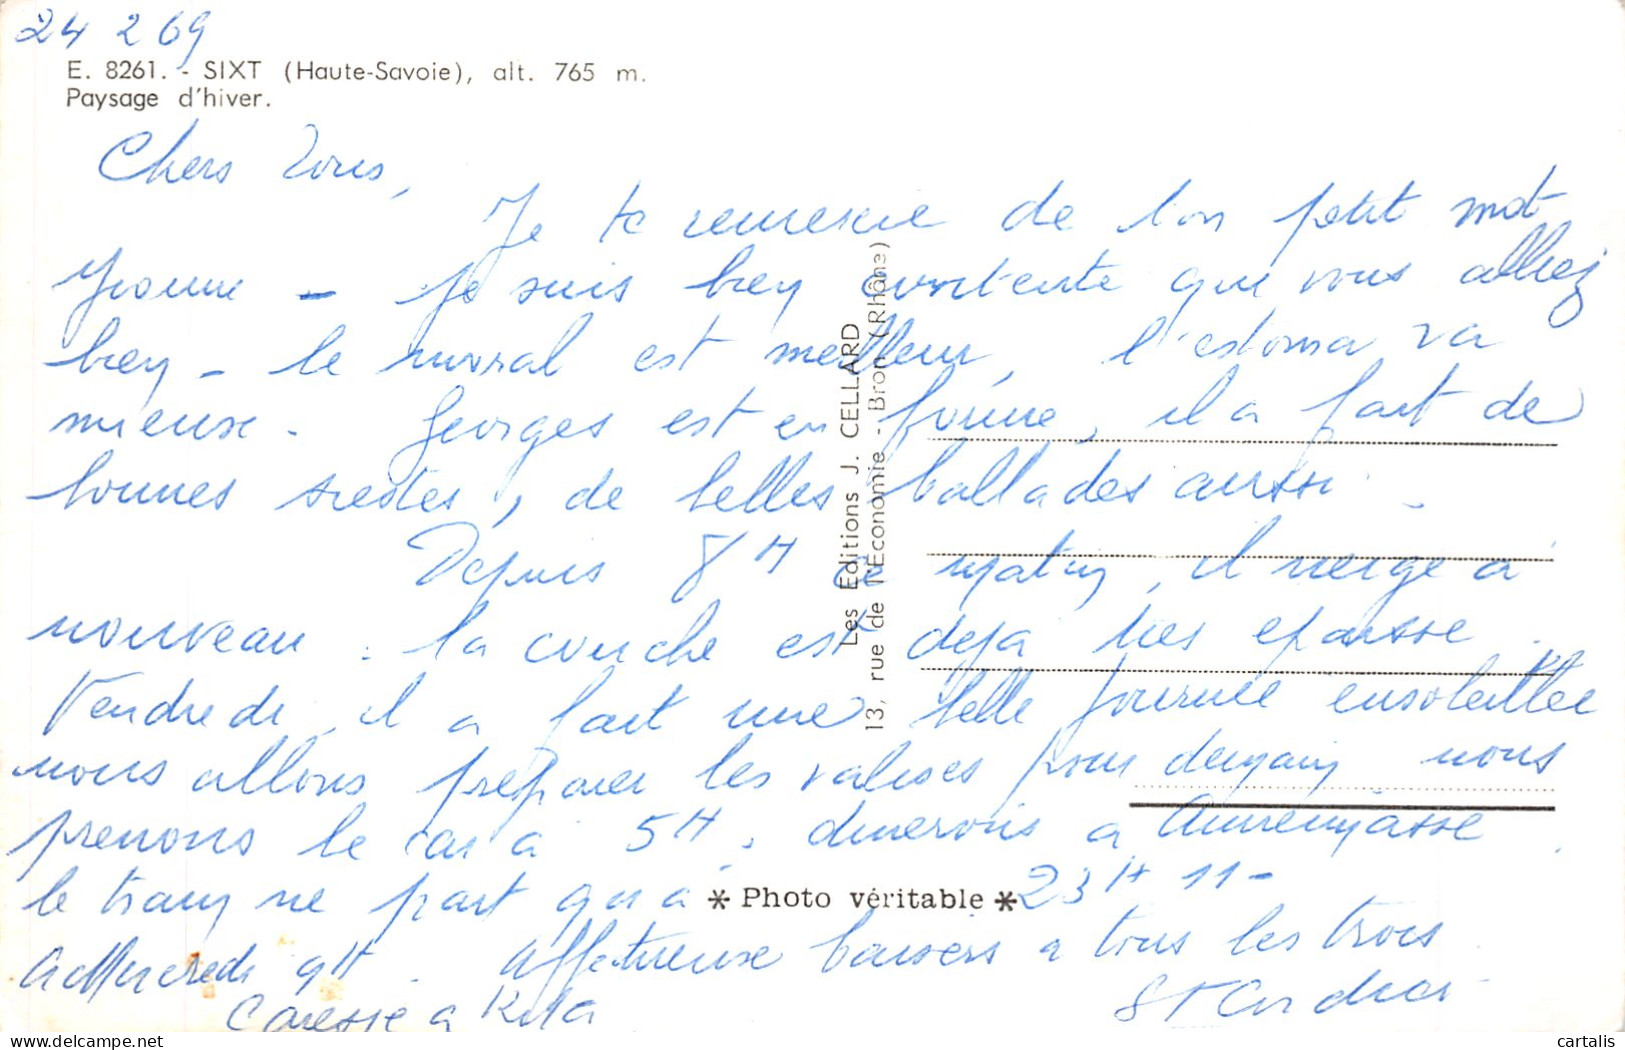 24 2 69
E. 8261. - SIXT (Haute-Savoie), alt. 765 m.
Paysage d'hiver.
Chers Tous,
Je te remercie de ton petit mot
Yvonne - Je suis bien contente que vous alliez
bien - le moral est meilleur, l'estoma va
mieux. Georges est en forme, il a fait de
bonnes siestes, de belles ballades aussi.
Depuis 8H ce matin, il neige à
nouveau. la couche est déjà très épaisse.
Vendredi, il a fait une belle journée ensoleillée
nous allons préparer les valises pour demain nous
prenons le car à 5H, dinerons à Annemasse.
le train ne part qu'à 23H 11 -
à Mercredi 9H. Affectueux baisers à tous les trois
Caresse à Kita
Les Editions J. CELLARD
13, rue de l'Économie - Bron (Rhône)
* Photo véritable *